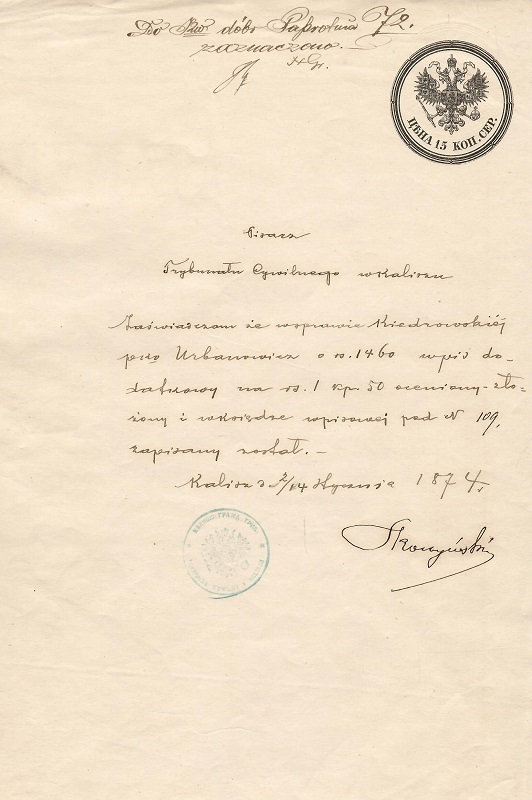 Do dóbr Paprotnia 72.
zaznaczono.
ЦѢНА 15 КОП. СЕР.
Pisarz
Trybunału Cywilnego w Kaliszu
Zaświadczam że wsprawie Kiedrowskiéj
pko Urbanowicz o rs. 1460 wpis do-
datkowy na rs. 1 kp. 50 oceniony zło-
żony i wksiędze wpisowej pod N 109,
zapisany został. –
Kalisz d 2/14 Stycznia 1874 r.